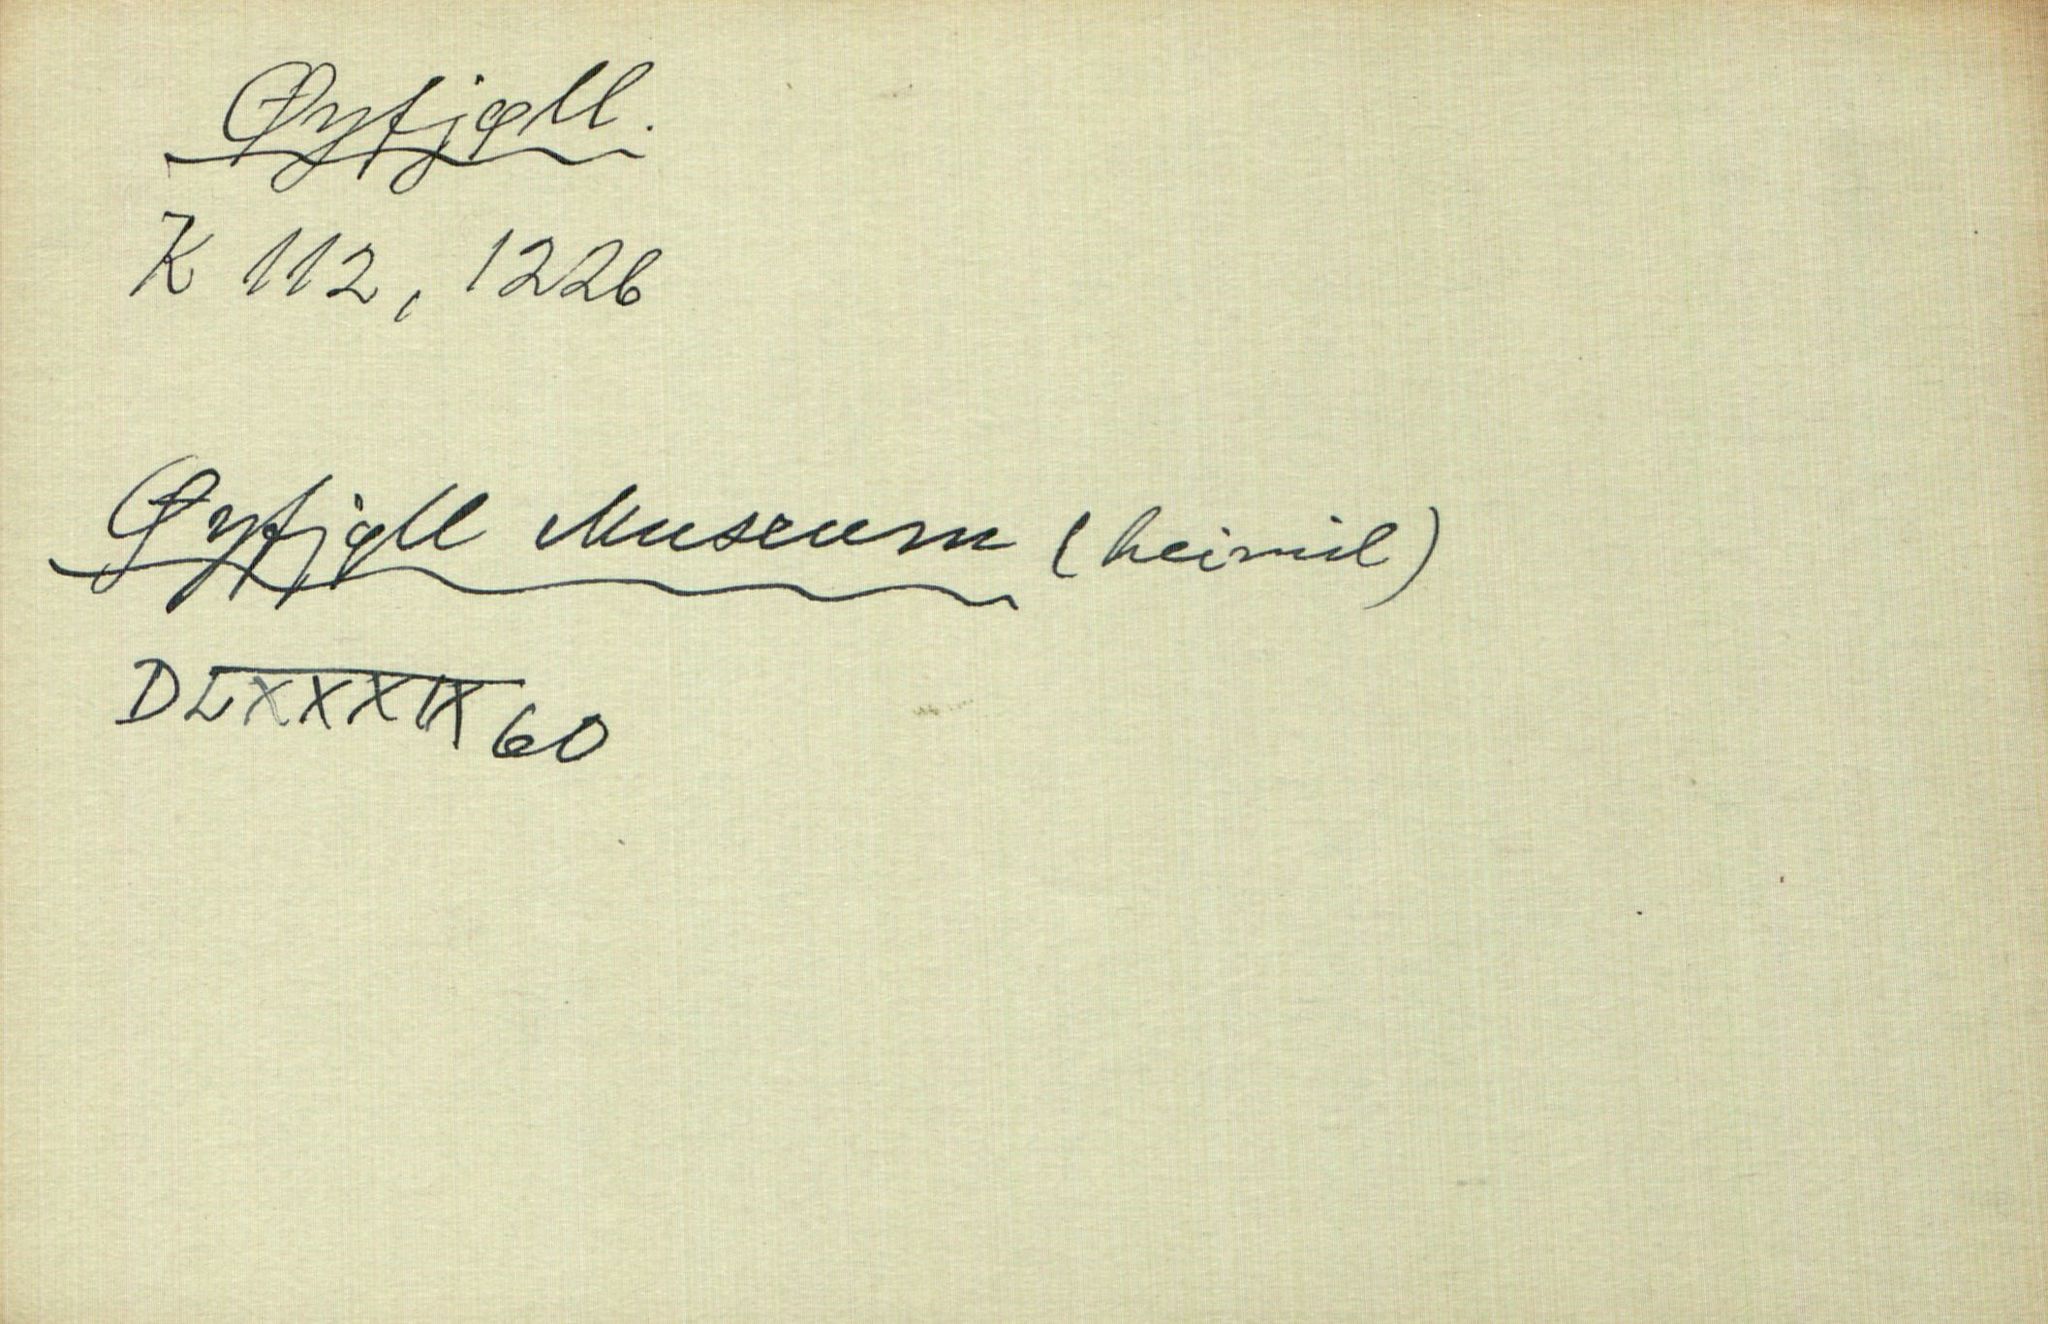 Øyfjell.
K 112, 1226
Øyfjell Museum (heimil)
D LXXXIX 60